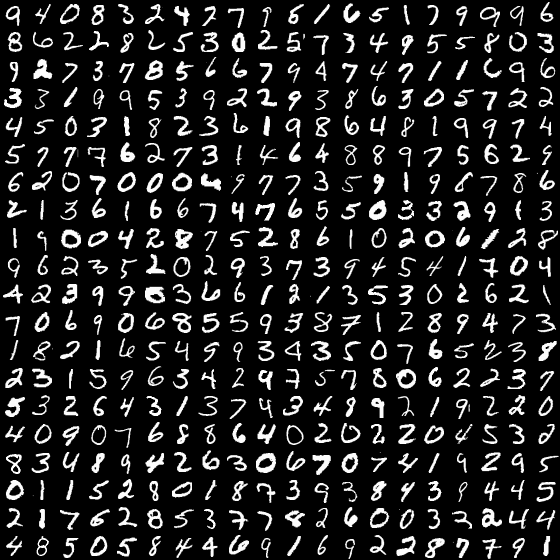 9 4 0 8 3 2 4 7 2 7 9 6 1 6 5 1 7 9 9 9 6
8 6 2 2 8 2 5 3 0 2 5 7 3 4 9 5 5 8 0 3
9 2 7 3 7 8 5 6 6 7 9 4 7 4 7 1 1 6 9 6
3 3 1 9 9 5 3 9 2 2 9 3 8 6 3 0 5 7 2 2
4 5 0 3 1 8 2 3 6 1 9 8 6 4 8 1 9 9 7 4
5 7 7 7 6 2 7 3 1 4 6 4 8 8 9 7 5 6 2 9
6 2 0 7 0 0 0 4 9 7 7 3 5 9 1 9 8 7 8 6
2 1 3 6 1 6 6 7 4 7 6 5 5 0 3 3 2 9 1 3
1 9 0 0 4 2 8 7 5 2 8 6 1 0 2 0 6 1 2 8
9 6 2 3 5 2 0 2 9 3 7 3 9 4 5 4 1 7 0 4
4 2 3 9 9 0 3 6 6 1 2 1 3 5 3 0 2 6 2 1
7 0 6 9 0 6 8 5 5 9 3 8 7 1 2 8 9 4 7 3
1 8 2 1 6 5 4 9 9 3 4 3 5 0 7 6 5 2 3 8
2 3 1 5 9 6 3 4 2 9 7 5 7 8 0 6 2 2 3 7
5 3 2 6 4 3 1 3 7 4 3 4 8 9 2 1 9 2 2 0
4 0 9 0 7 6 8 8 6 4 0 2 0 2 2 0 4 5 3 2
8 3 4 8 9 4 2 6 3 0 6 7 0 7 4 1 9 2 9 5
0 1 1 5 2 8 0 1 8 7 3 9 3 8 4 3 9 4 4 5
2 1 7 6 2 8 5 3 7 7 8 2 6 0 0 3 2 2 4 4
4 8 5 0 5 8 4 4 6 9 1 6 9 2 2 8 7 7 9 1